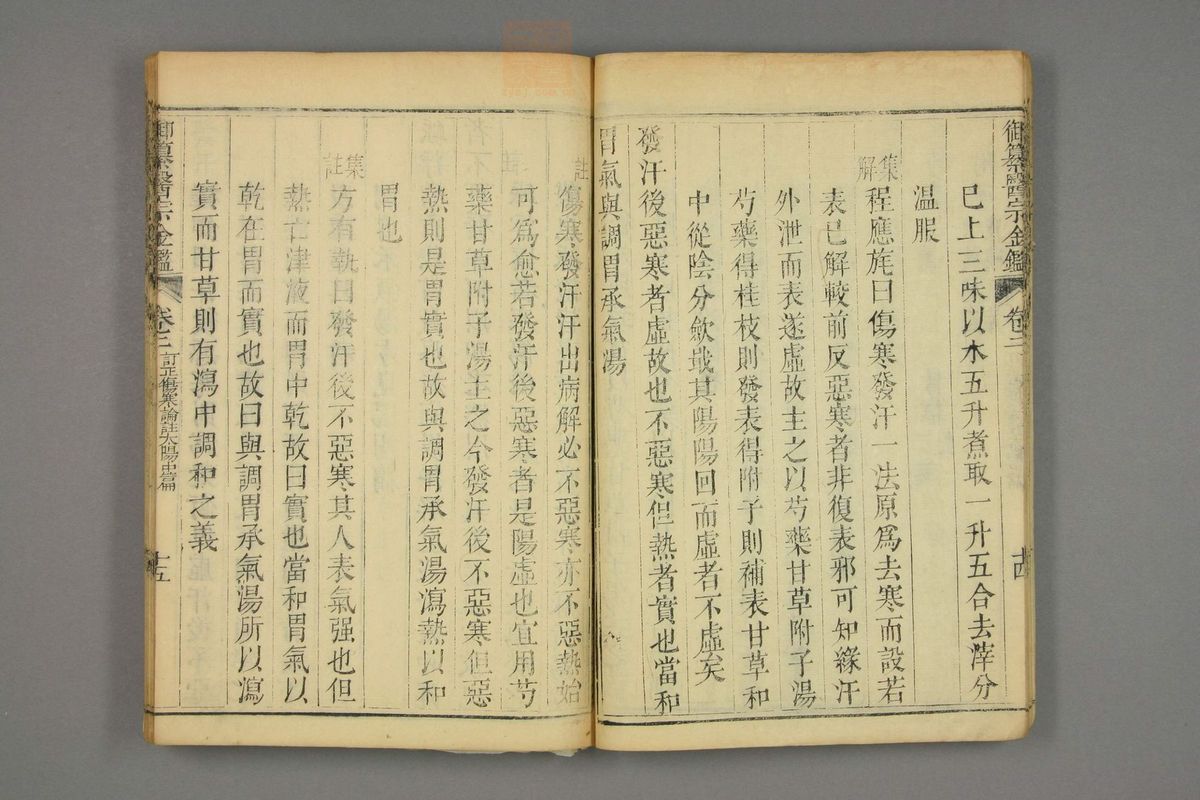 御纂醫宗金鑑 卷三 十四
巳上三味以水五升煮取一升五合去滓分
温服
集解
程應旄曰傷寒發汗一法原爲去寒而設若
表已解較前反惡寒者非復表邪可知緣汗
外泄而表遂虛故主之以芍藥甘草附子湯
芍藥得桂枝則發表得附子則補表甘草和
中從陰分歛戢其陽陽回而虛者不虛矣
發汗後惡寒者虛故也不惡寒但熱者實也當和
胃氣與調胃承氣湯
註
傷寒發汗汗出病解必不惡寒亦不惡熱始
可爲愈若發汗後惡寒者是陽虛也宜用芍
藥甘草附子湯主之今發汗後不惡寒但惡
熱則是胃實也故與調胃承氣湯瀉熱以和
胃也
集註
方有執曰發汗後不惡寒其人表氣强也但
熱亡津液而胃中乾故曰實也當和胃氣以
乾在胃而實也故曰與調胃承氣湯所以瀉
實而甘草則有瀉中調和之義
御纂醫宗金鑑 卷三 訂正傷寒論註太陽中篇 十五